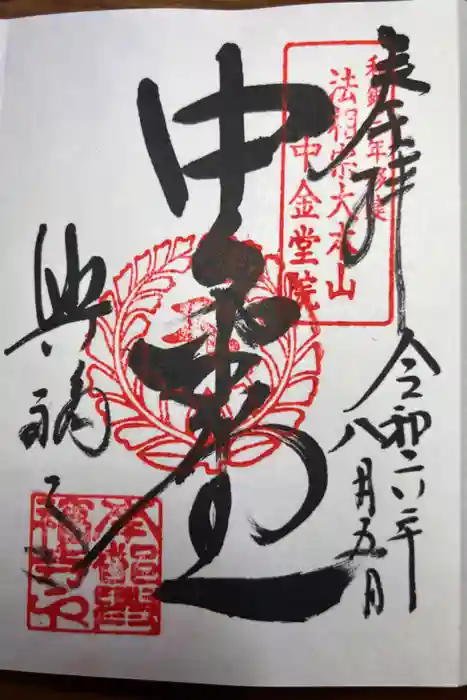 奉拝
和銅三年創建
法相宗大本山
中金堂院
令和六年
八月五日
中金堂
興福寺